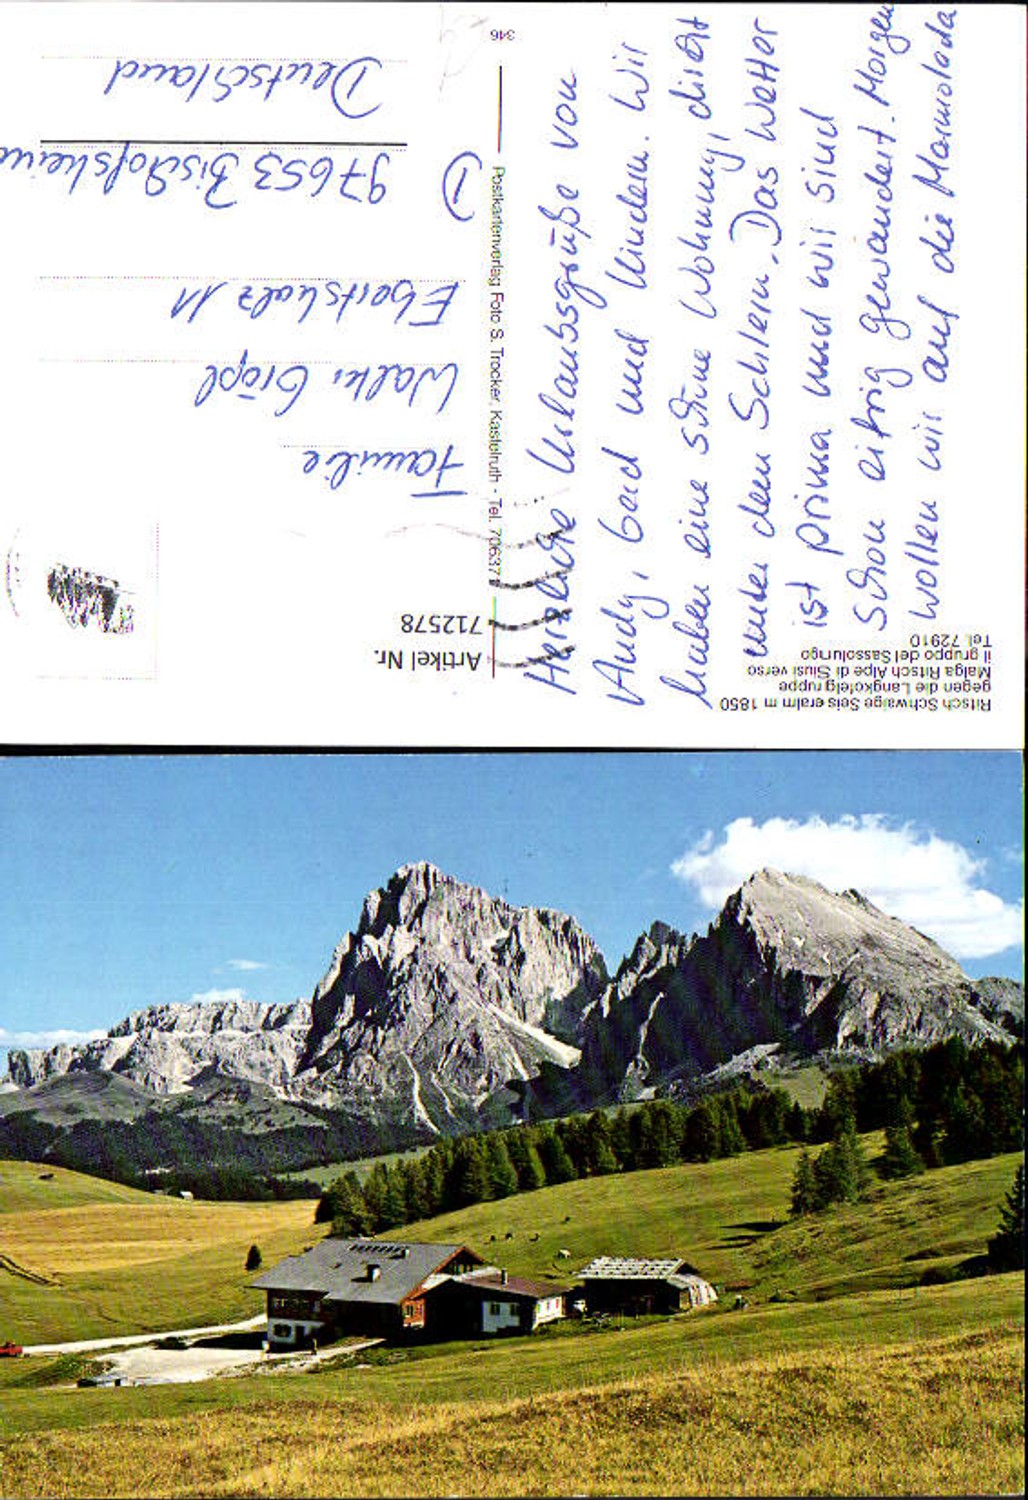 Ritsch Schwaige Seiseralm m 1850
gegen die Langkofelgruppe
Malga Ritsch Alpe di Siusi verso
il gruppo del Sassolungo
Tel. 72910
Herzliche Urlaubsgrüße von
Andy, Gerd und Kindern. Wir
haben eine schöne Wohnung, direkt
unter dem Schlern. Das Wetter
ist prima und wir sind
schon eifrig gewandert. Morgen
wollen wir auf die Marmolada
Postkartenverlag Foto S. Trocker, Kastelruth - Tel. 70637
346
Artikel Nr.
712578
Familie
Walter
11
D 97653 Bischofsheim
Deutschland